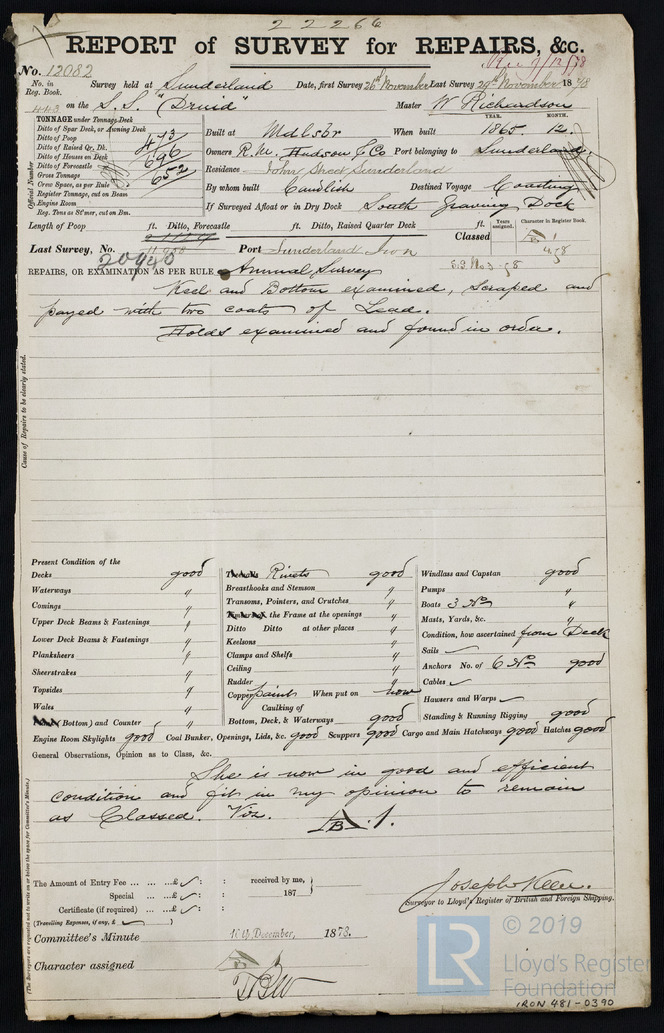 22266
REPORT of SURVEY for REPAIRS, &c.
No. 12082
No. in Reg. Book. Survey held at Sunderland Date, first Survey 26th November Last Survey 29th November 1878
443 on the S.S. "Druid" Master W. Richardson
TONNAGE under Tonnage Deck
Ditto of Spar Deck, or Awning Deck
Ditto of Poop 473
Ditto of Raised Qr. Dk.
Ditto of Houses on Deck 696
Ditto of Forecastle
Gross Tonnage 652
Crew Space, as per Rule
Register Tonnage, cut on Beam
Engine Room
Reg. Tons as St'mer, cut on Bm.
Official Number
YEAR. MONTH.
Built at Mdlsbr When built 1865. 12.
Owners R. M. Hudson & Co Port belonging to Sunderland.
Residence John Street Sunderland
By whom built Candlish Destined Voyage Coasting
If Surveyed Afloat or in Dry Dock South Graving Dock
Length of Poop ft. Ditto, Forecastle ft. Ditto, Raised Quarter Deck ft.
Years assigned. Character in Register Book.
Classed
Last Survey, No. Port Sunderland Iron
20440
REPAIRS, OR EXAMINATION AS PER RULE Annual Survey
Keel and Bottom examined, scraped and
payed with two coats of Lead.
Holds examined and found in order.
Cause of Repairs to be clearly stated.
Present Condition of the
Decks good
Waterways "
Comings "
Upper Deck Beams & Fastenings "
Lower Deck Beams & Fastenings "
Planksheers "
Sheerstrakes "
Topsides "
Wales "
(Bottom) and Counter "
Rivets good
Breasthooks and Stemson "
Transoms, Pointers, and Crutches "
the Frame at the openings "
Ditto Ditto at other places "
Keelsons "
Clamps and Shelfs "
Ceiling "
Rudder "
Copper paint When put on now
Caulking of
Bottom, Deck, & Waterways good
Windlass and Capstan good
Pumps "
Boats 3 No "
Masts, Yards, &c. "
Condition, how ascertained from Deck
Sails ✓
Anchors No. of 6 No good
Cables ✓
Hawsers and Warps ✓
Standing & Running Rigging good
Engine Room Skylights good Coal Bunker, Openings, Lids, &c. good Scuppers good Cargo and Main Hatchways good Hatches good
General Observations, Opinion as to Class, &c.
She is now in good and efficient
condition and fit in my opinion to remain
as Classed. Viz. B.1.
The Amount of Entry Fee ... ... ...£ ✓ : : received by me,
Special ... ...£ ✓ : : 187
Certificate (if required) ... ...£ ✓ : :
(Travelling Expenses, if any, £ ✓ )
Joseph Keen.
Surveyor to Lloyd's Register of British and Foreign Shipping.
Committee's Minute 10th December, 1878.
Character assigned
© 2019
LR
Lloyd's Register
Foundation
IRON 481-0390